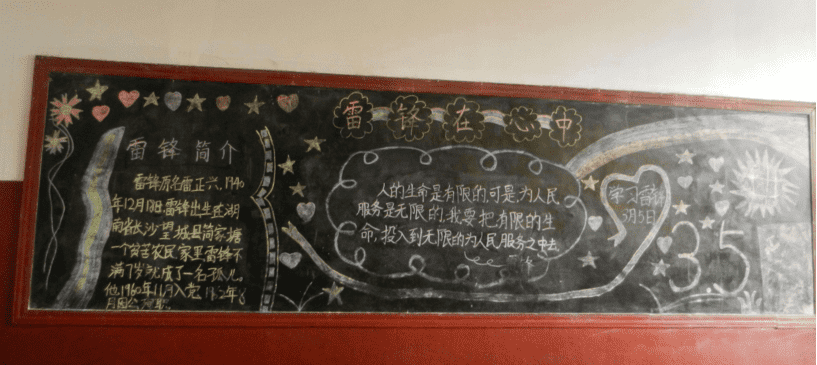 雷锋在心中
雷锋简介
雷锋原名雷正兴,1940
年12月18日雷锋出生在湖
南省长沙望城县简家塘
一个贫苦农民家里雷锋不
满7岁就成了一名孤儿
他1960年11月入党 1962年8
月因公
人的生命是有限的,可是,为人民
服务是无限的,我要把有限的生
命,投入到无限的为人民服务之中去
学习雷锋
3月5日
3.5